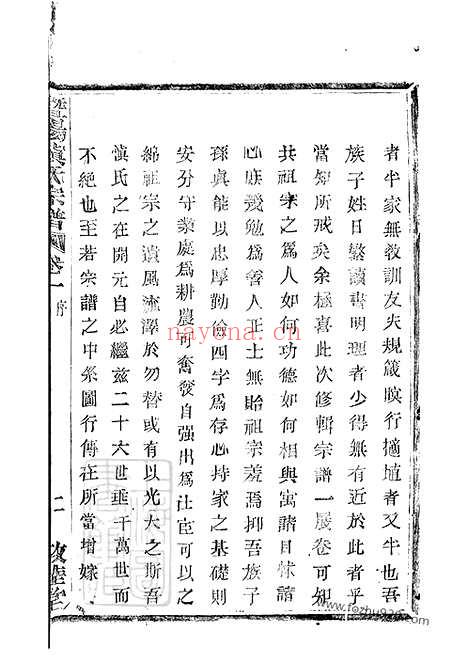 者半家無敎訓友失規箴瞑行擿埴者又半也吾
族子姓日繁讀書明理者少得無有近於此者乎
當知所戒矣余極喜此次修輯宗譜一展卷可知
共祖宗之爲人如何功德如何相與寓諸目怵諸
心庶幾勉爲善人正士無貽祖宗羞焉抑吾族子
孫眞能以忠厚勤儉四字爲存心持家之基礎則
安分守業處爲耕農可奮發自强出爲仕宦可以之
綿祖宗之遺風流澤於勿替或有以光大之斯吾
滇氏之在開元自必繼玆二十六世垂千萬世而
不絶也至若宗譜之中系圖行傳在所當增嫁
氏宗譜 卷一 序 二
nayona.cn
www.fozhu920.com